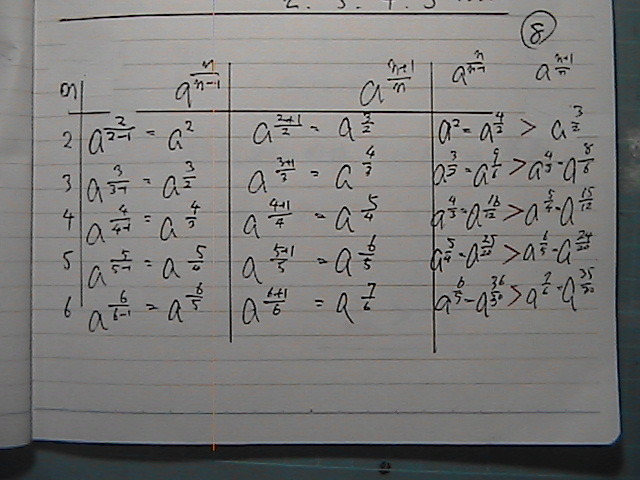 2. 3. 4. 5
⑧
n a^{\frac{n}{n-1}} a^{\frac{n+1}{n}} a^{\frac{n}{n-1}} a^{\frac{n+1}{n}}
2 a^{\frac{2}{2-1}} = a^2 a^{\frac{2+1}{2}} = a^{\frac{3}{2}} a^2 = a^{\frac{4}{2}} > a^{\frac{3}{2}}
3 a^{\frac{3}{3-1}} = a^{\frac{3}{2}} a^{\frac{3+1}{3}} = a^{\frac{4}{3}} a^{\frac{3}{2}} = a^{\frac{9}{6}} > a^{\frac{4}{3}} = a^{\frac{8}{6}}
4 a^{\frac{4}{4-1}} = a^{\frac{4}{3}} a^{\frac{4+1}{4}} = a^{\frac{5}{4}} a^{\frac{4}{3}} = a^{\frac{16}{12}} > a^{\frac{5}{4}} = a^{\frac{15}{12}}
5 a^{\frac{5}{5-1}} = a^{\frac{5}{4}} a^{\frac{5+1}{5}} = a^{\frac{6}{5}} a^{\frac{5}{4}} = a^{\frac{25}{20}} > a^{\frac{6}{5}} = a^{\frac{24}{20}}
6 a^{\frac{6}{6-1}} = a^{\frac{6}{5}} a^{\frac{6+1}{6}} = a^{\frac{7}{6}} a^{\frac{6}{5}} = a^{\frac{36}{30}} > a^{\frac{7}{6}} = a^{\frac{35}{30}}